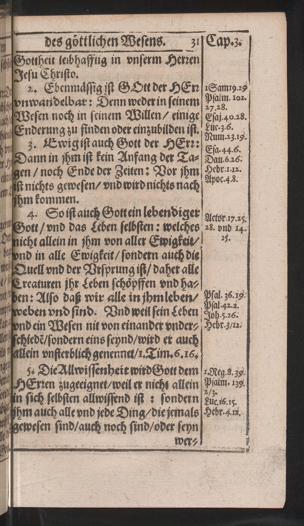 des göttlichen Wesens. 31 Cap.3.
Gottheit leibhafftig in vnserm Herzen
Jesu Christo.
2. Ebenmässig ist GOtt der HErz
vnwandelbar: Denn weder in seinem
Wesen noch in seinem Willen / einige
Enderung zu finden oder einzubilden ist.
3. Ewig ist auch Gott der HErz:
Dann in jhm ist kein Anfang der Ta-
gen / noch Ende der Zeiten: Vor jhm
ist nichts gewesen / vnd wird nichts nach
jhm kommen.
4. So ist auch Gott ein lebendiger
Gott / vnd das Leben selbsten: welches
nicht allein in jhm von aller Ewigkeit /
vnd in alle Ewigkeit / sondern auch die
Quell vnd der Vrsprung ist / daher alle
Creaturen jhr Leben schöpffen vnd ha-
ben: Also daß wir alle in jhm leben /
weben vnd sind. Vnd weil sein Leben
vnd ein Wesen nit von einander vnder-
schied / sondern eins seynd / wird er auch
allein vnsterblich genennt / 1. Tim. 6.16.
5. Die Allwissenheit wird Gott dem
HErzen zugeeignet / weil er nicht allein
in sich selbsten allwissend ist: sondern
jhm auch alle vnd jede Ding / die jemals
gewesen sind / auch noch sind / oder seyn
wer-
1 Sam 15.29
Psalm. 102.
27.28.
Esaj. 40.28.
Luc. 3.6.
Num. 23.19.
Esa. 44.6.
Dan. 6.26.
Hebr. 1.12.
Apoc. 4.8.
Actor. 17.25.
28. vnd 14.
15.
Psal. 36.19.
Psal. 42.2.
Joh. 5.26.
Hebr. 3/12.
1. Reg. 8.39.
Psalm. 139.
2/3.
Luc. 16.15.
Hebr. 4.12.